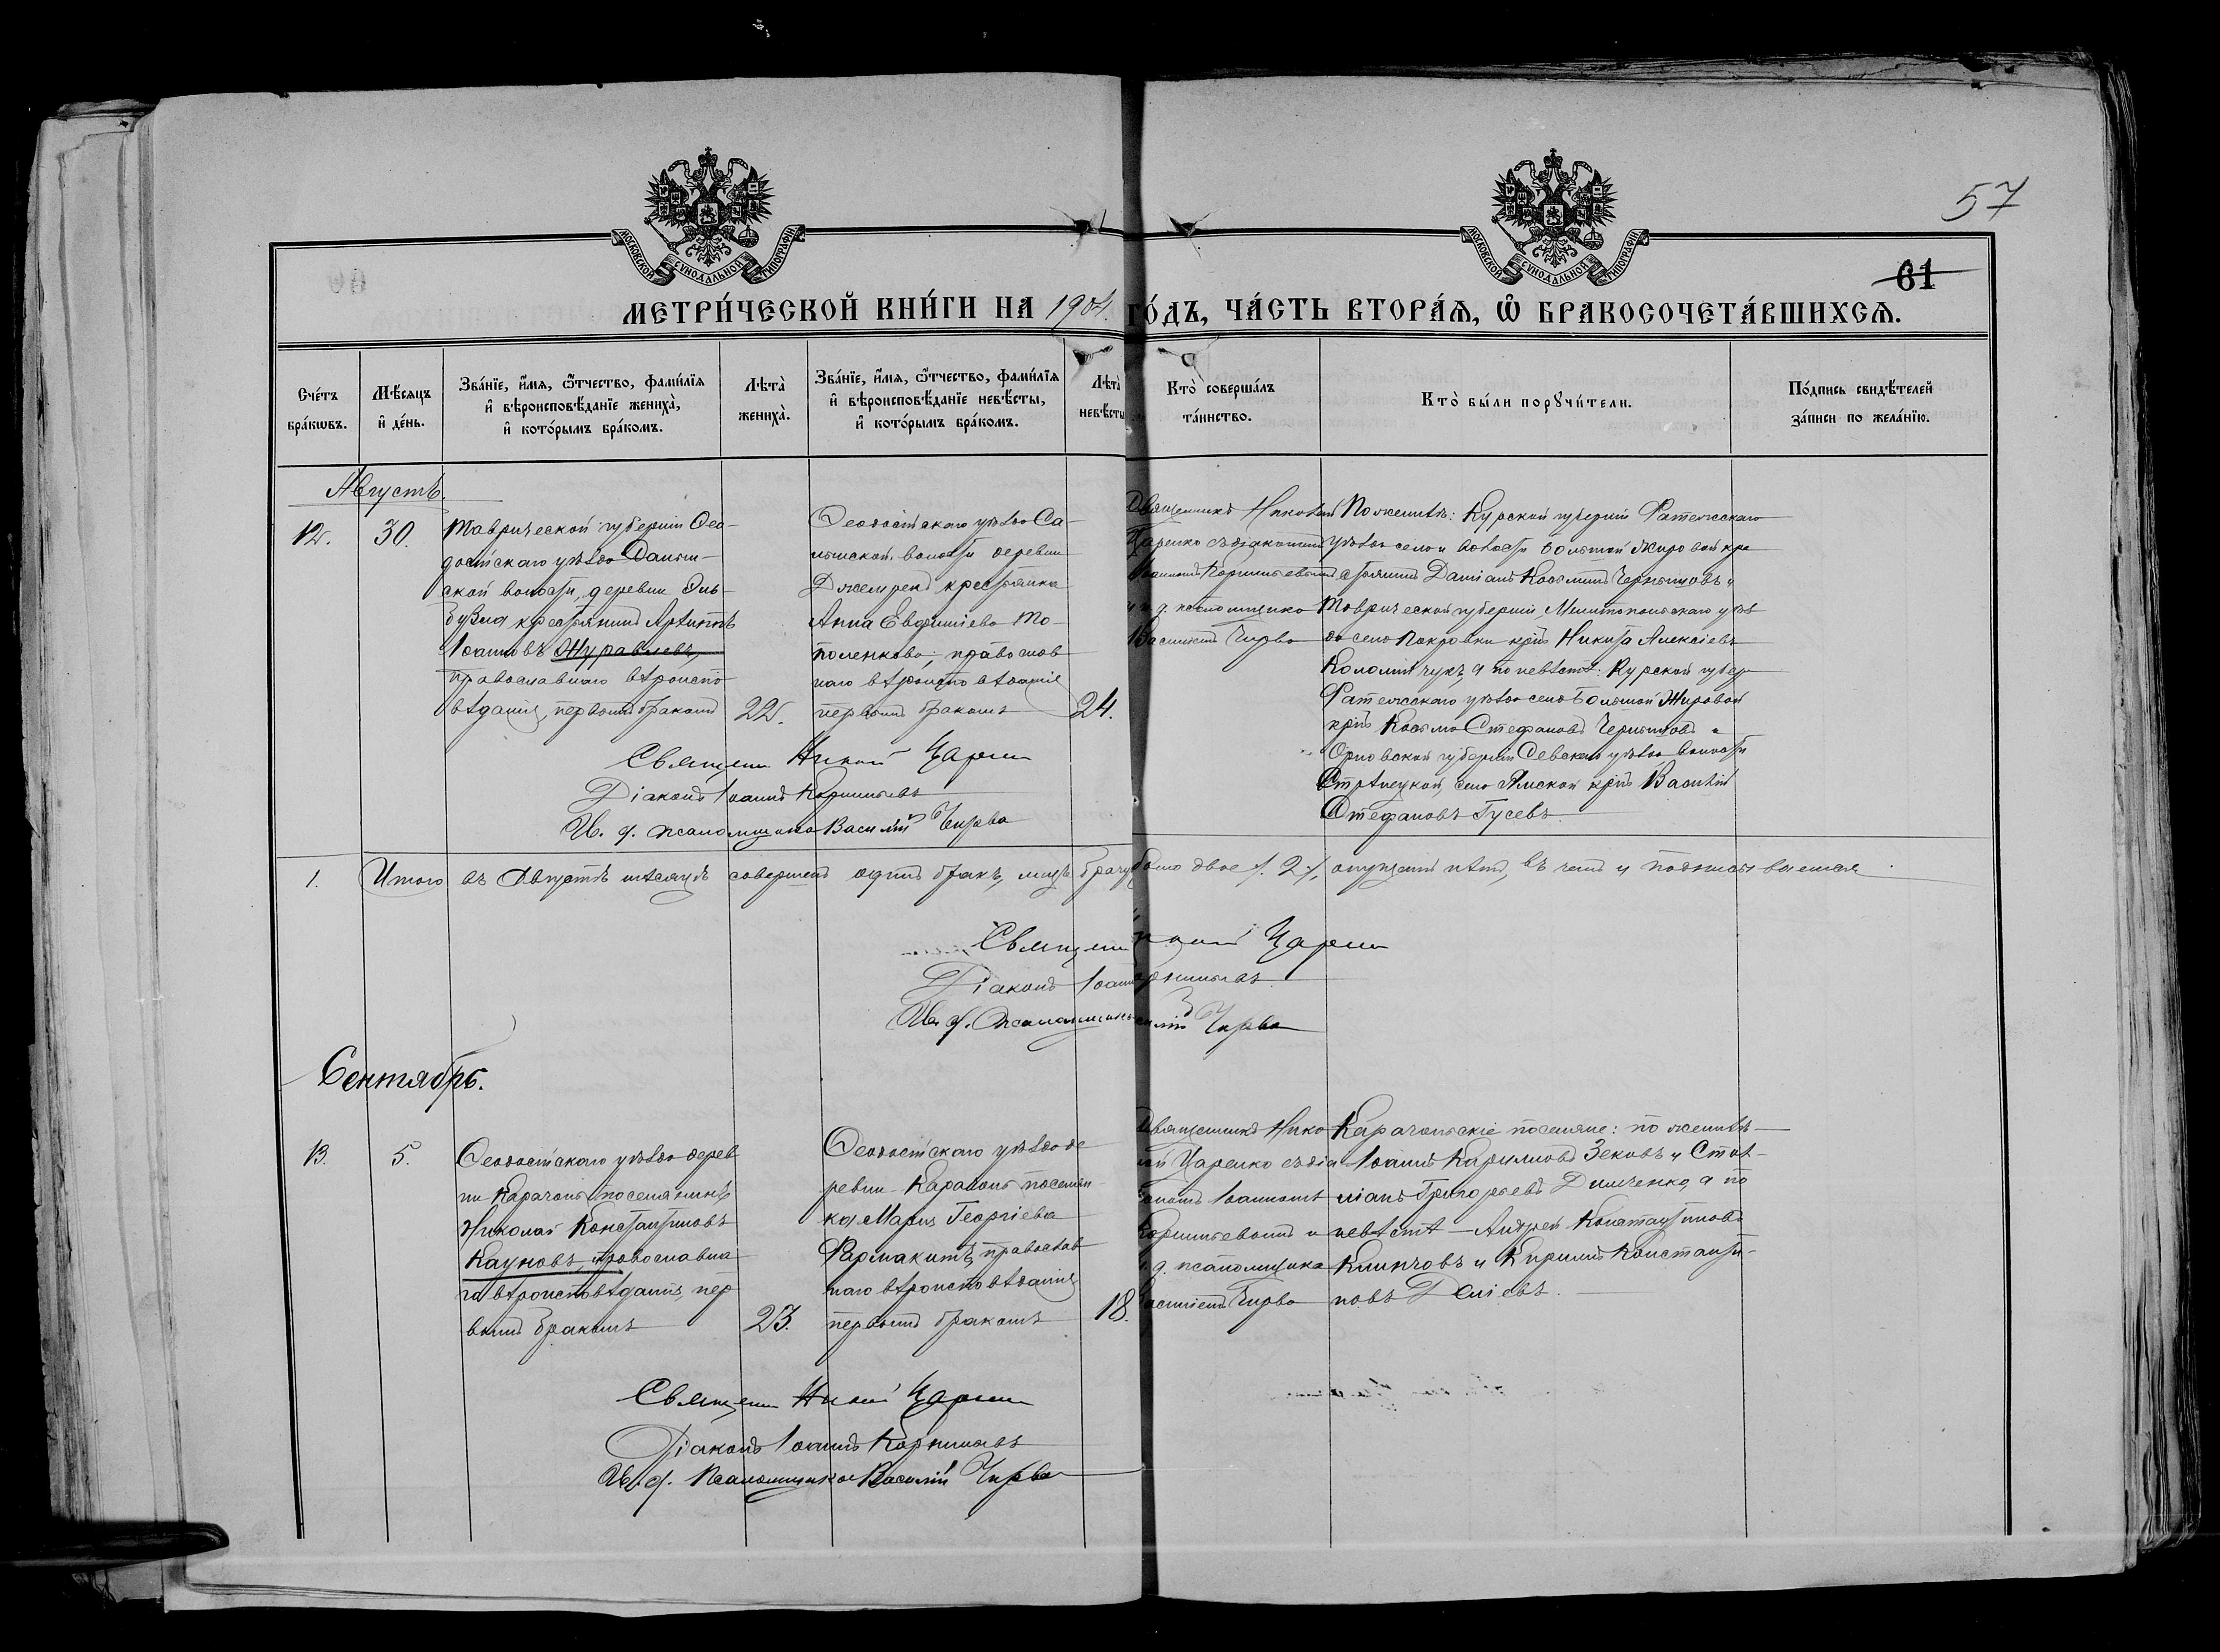 57
61
МОСКОВСКОЙ СѴНОДАЛЬНОЙ ТИПОГРАФІИ
МОСКОВСКОЙ СѴНОДАЛЬНОЙ ТИПОГРАФІИ
МЕТРИ́ЧЕСКОЙ КНИ́ГИ НА 1904. ГО́ДЪ, ЧА́СТЬ ВТОРА́Ѧ, Ѽ БРАКОСОЧЕТА́ВШИХСѦ.
Сче́тъ бра́кѡвъ.
Мѣ́сяцъ и҆ де́нь.
Зва́нїе, и҆́мѧ, ѻ҆́тчество, фами́лїѧ и҆ вѣроисповѣ́данїе жениха̀, и҆ кото́рымъ бра́комъ.
Лѣта̀ жениха̀.
Зва́нїе, и҆́мѧ, ѻ҆́тчество, фами́лїѧ и҆ вѣроисповѣ́данїе невѣ́сты, и҆ кото́рымъ бра́комъ.
Лѣта̀ невѣ́сты
Кто̀ соверша́лъ та́инство.
Кто̀ бы́ли порꙋчи́тели.
По́дпись свидѣ́телей за́писи по жела́нїю.
Августъ.
12.
30.
Таврической губерніи Ѳео-
досійскаго уѣзда
ской волости, деревни
крестьянинъ
Іоанновъ Журавлевъ,
православнаго вѣроиспо
вѣданія, первымъ бракомъ
22.
Ѳеодосійскаго уѣзда Са-
волости деревни
крестьянка
Анна Евѳиміева То-
поленкова, православ
наго вѣроисповѣданія
первымъ бракомъ
24.
Священникъ Николай
Царенко съ діакономъ
Іоанномъ Корнильевымъ
и и. д. псаломщика
Василіемъ Чирва
По женихѣ: Курской губерніи Фатежскаго
уѣзда села и волости Большой Жировой кре
стьянинъ Даміанъ Косьминъ Чернышовъ и
Таврической губерніи, Мелитопольскаго уѣз
да села Покровки крѣс Никита Алексіевъ
Коломійчукъ, а по невѣстѣ: Курской губер
Фатежскаго уѣзда села Большой Жировой
крѣс Косьма Стефановъ Чернышовъ и
Орловской губерніи Севскаго уѣзда, волости
Стрѣлецкой, села Ямской крѣс Василій
Стефановъ Гусевъ.
Священ Никол Царен
Діаконъ Іоаннъ Корнильевъ
И. д. псаломщика Василій Чирва
1. Итого въ Августѣ мѣсяцѣ совершенъ одинъ бракъ, лицъ было двое /. 2 /. въ чемъ и подписываемся
Священ Царен
Діаконъ
И. д. Чирва
Сентябрь.
13.
5.
Ѳеодосійскаго уѣзда дерев
ни Карачоль поселянинъ
Николай Константиновъ
Кауновъ, православна
го вѣроисповѣданія, пер
вымъ бракомъ
23.
Ѳеодосійскаго уѣзда де
ревни Карачоль поселян
ка Марія Георгіева
Фармакитъ, православ
наго вѣроисповѣданія
первымъ бракомъ
18.
Священникъ Нико
лай Царенко съ діа
кономъ Іоанномъ
Корнильевымъ и
и. д. псаломщика
Василіемъ Чирва
Карачольскіе поселяне: по женихѣ
Іоаннъ Зековъ и Сти-
ліанъ Григорьевъ Димченко, а по
невѣстѣ — Андрей Константиновъ
Клинчовъ и Кириллъ Константи-
новъ Деліевъ.
Священ Никол Царен
Діаконъ Іоаннъ Корнильевъ
И. д. Псаломщика Василій Чирва